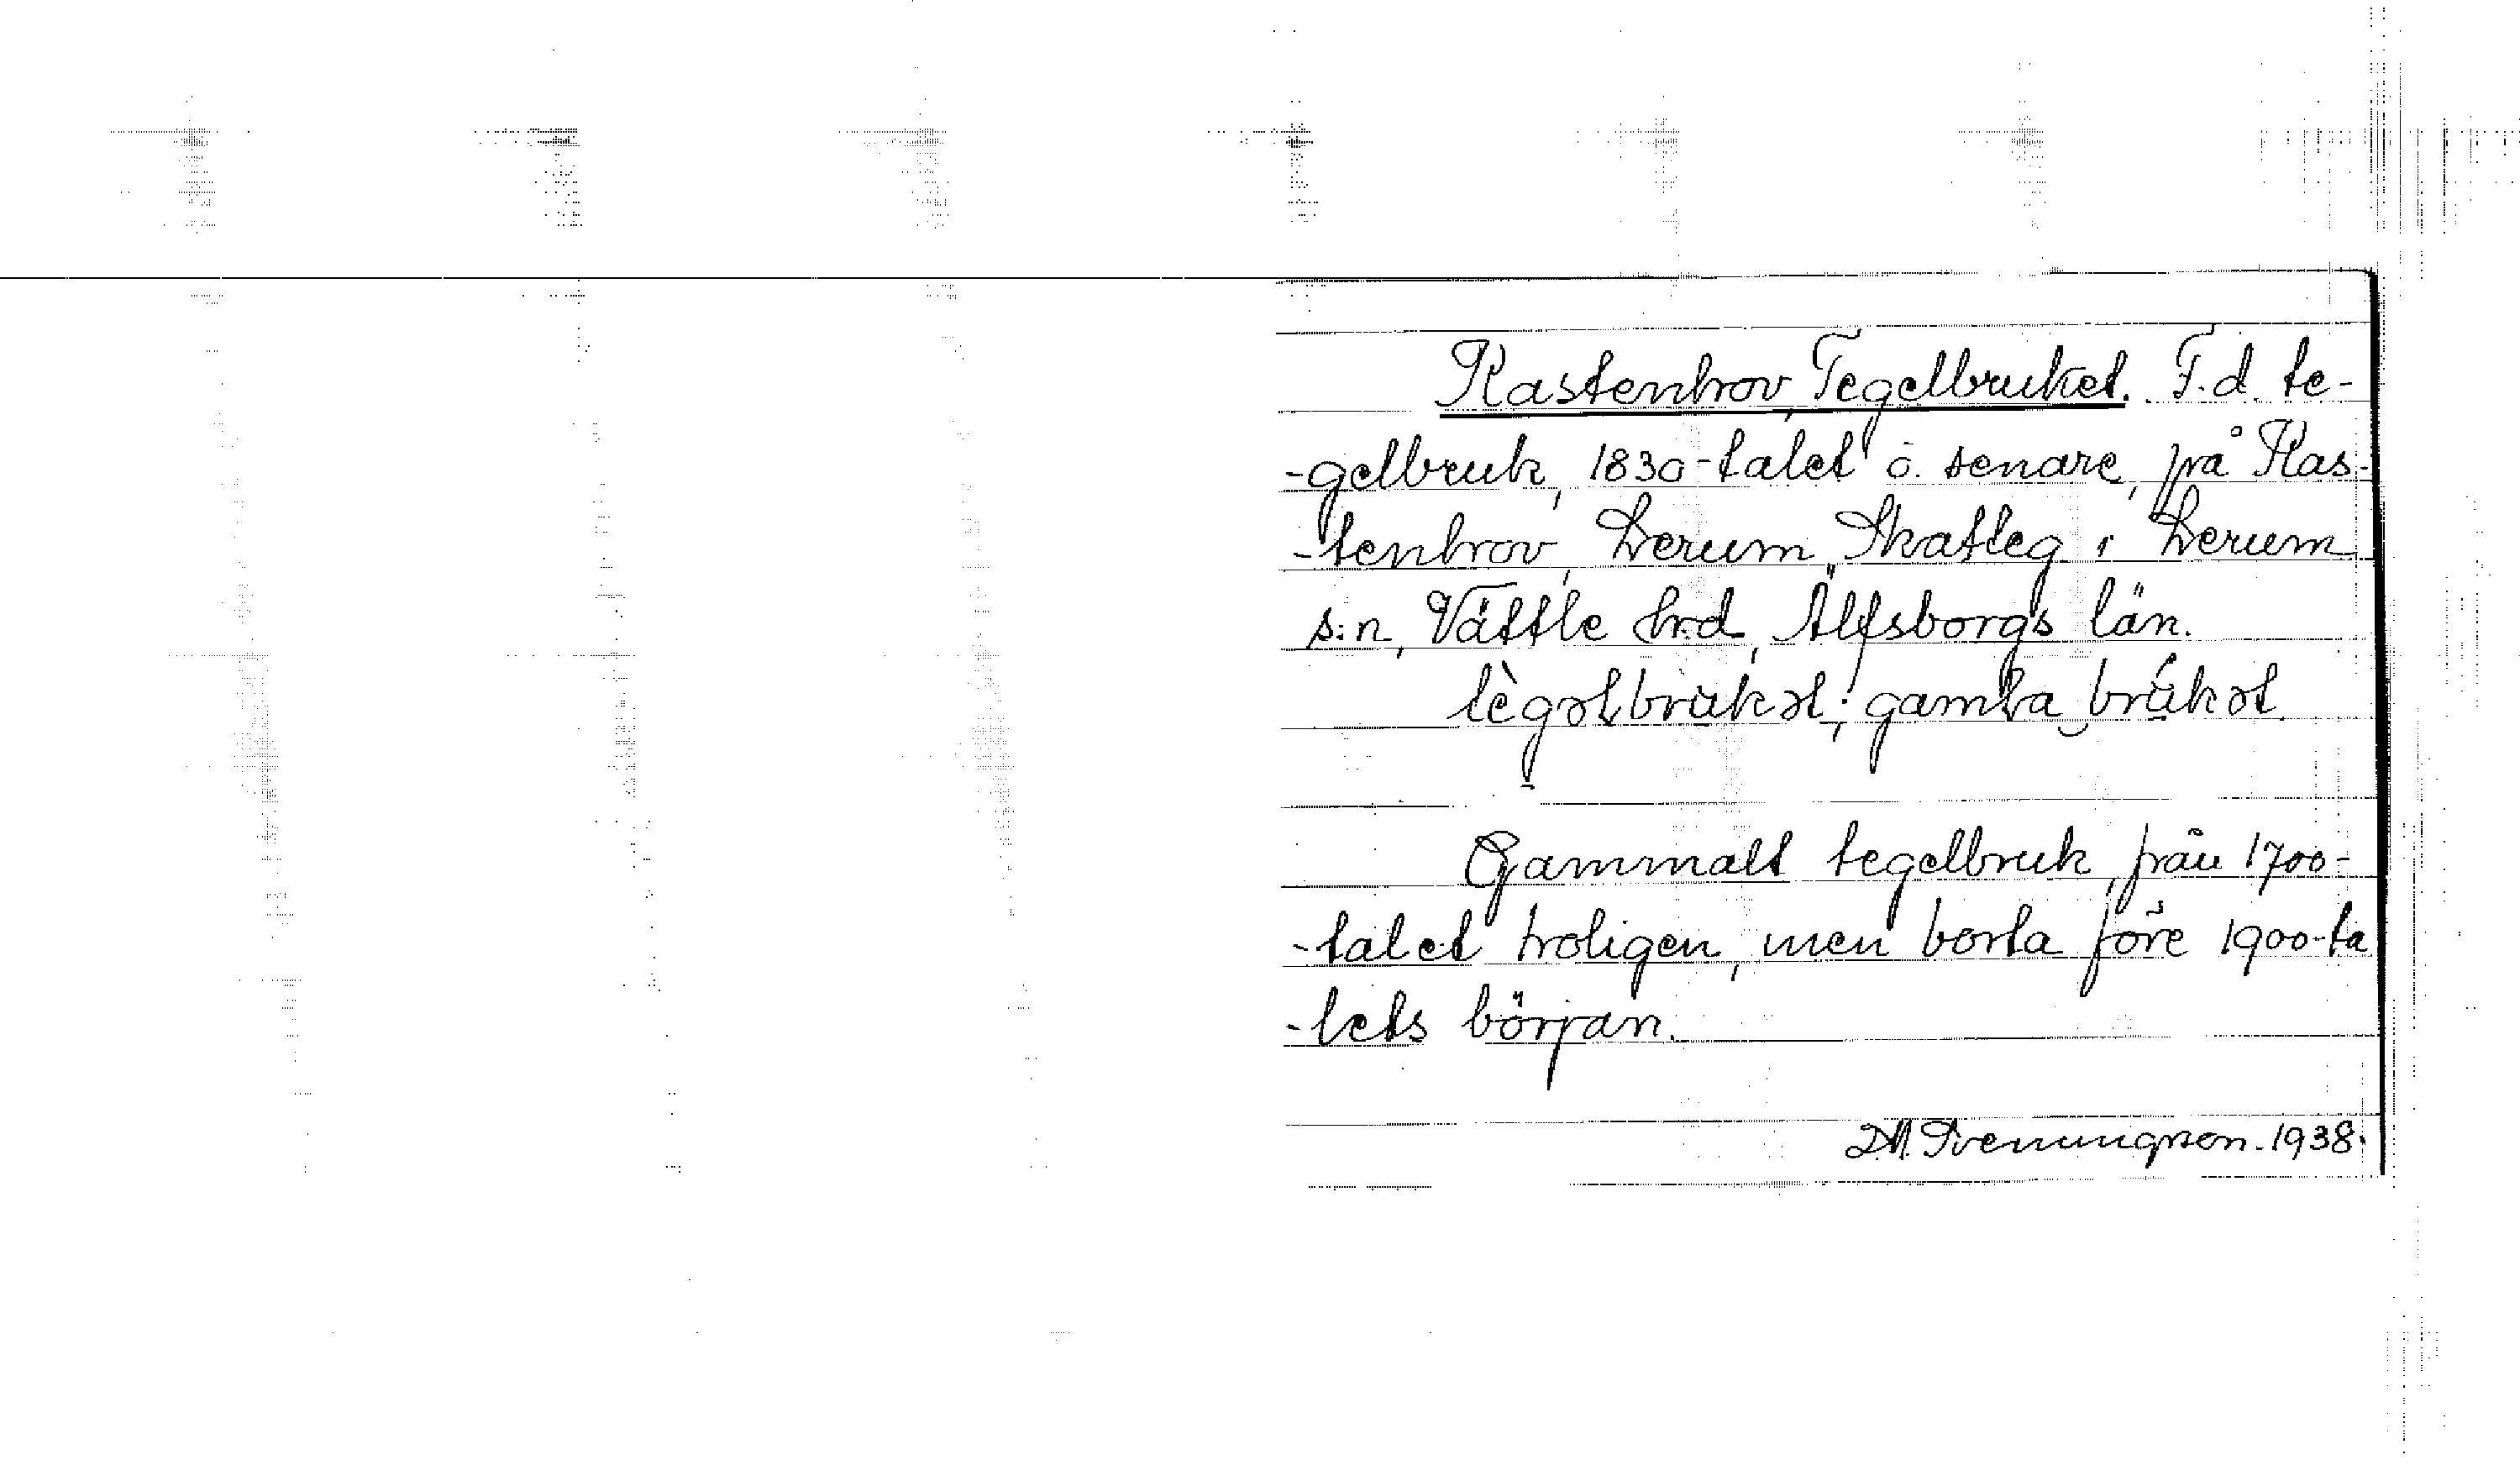 Kastenhov, Tegelbruket. F.d. te-
-gelbruk, 1830-talet o. senare, på Kas-
-tenhov, Lerum, Skatteg i Lerum
s:n, Vättle hrd, Älfsborgs län.
tègəlbrukət; gamla brukət
Gammalt tegelbruk, från 1700-
-talet troligen, men borta före 1900-ta
-lets början.
D.A. Svenungson. 1938.